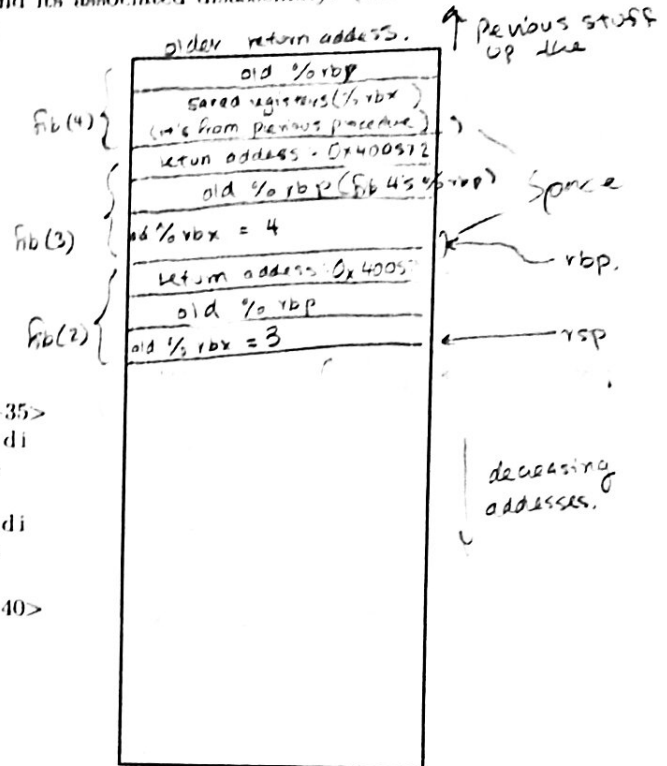 nd its associated
older return address.
↑ Pevious stuff
up the
old % rbp
fib(4)
saved registers (% rbx)
(it's from pervious procedure)
retun address = 0x400572
old % rbp (fib 4's % rbp)
Space
fib(3)
old % rbx = 4
rbp.
return address: 0x4005
old % rbp
fib(2)
old % rbx = 3
rsp
35>
di
decreasing
addesses.
di
40>